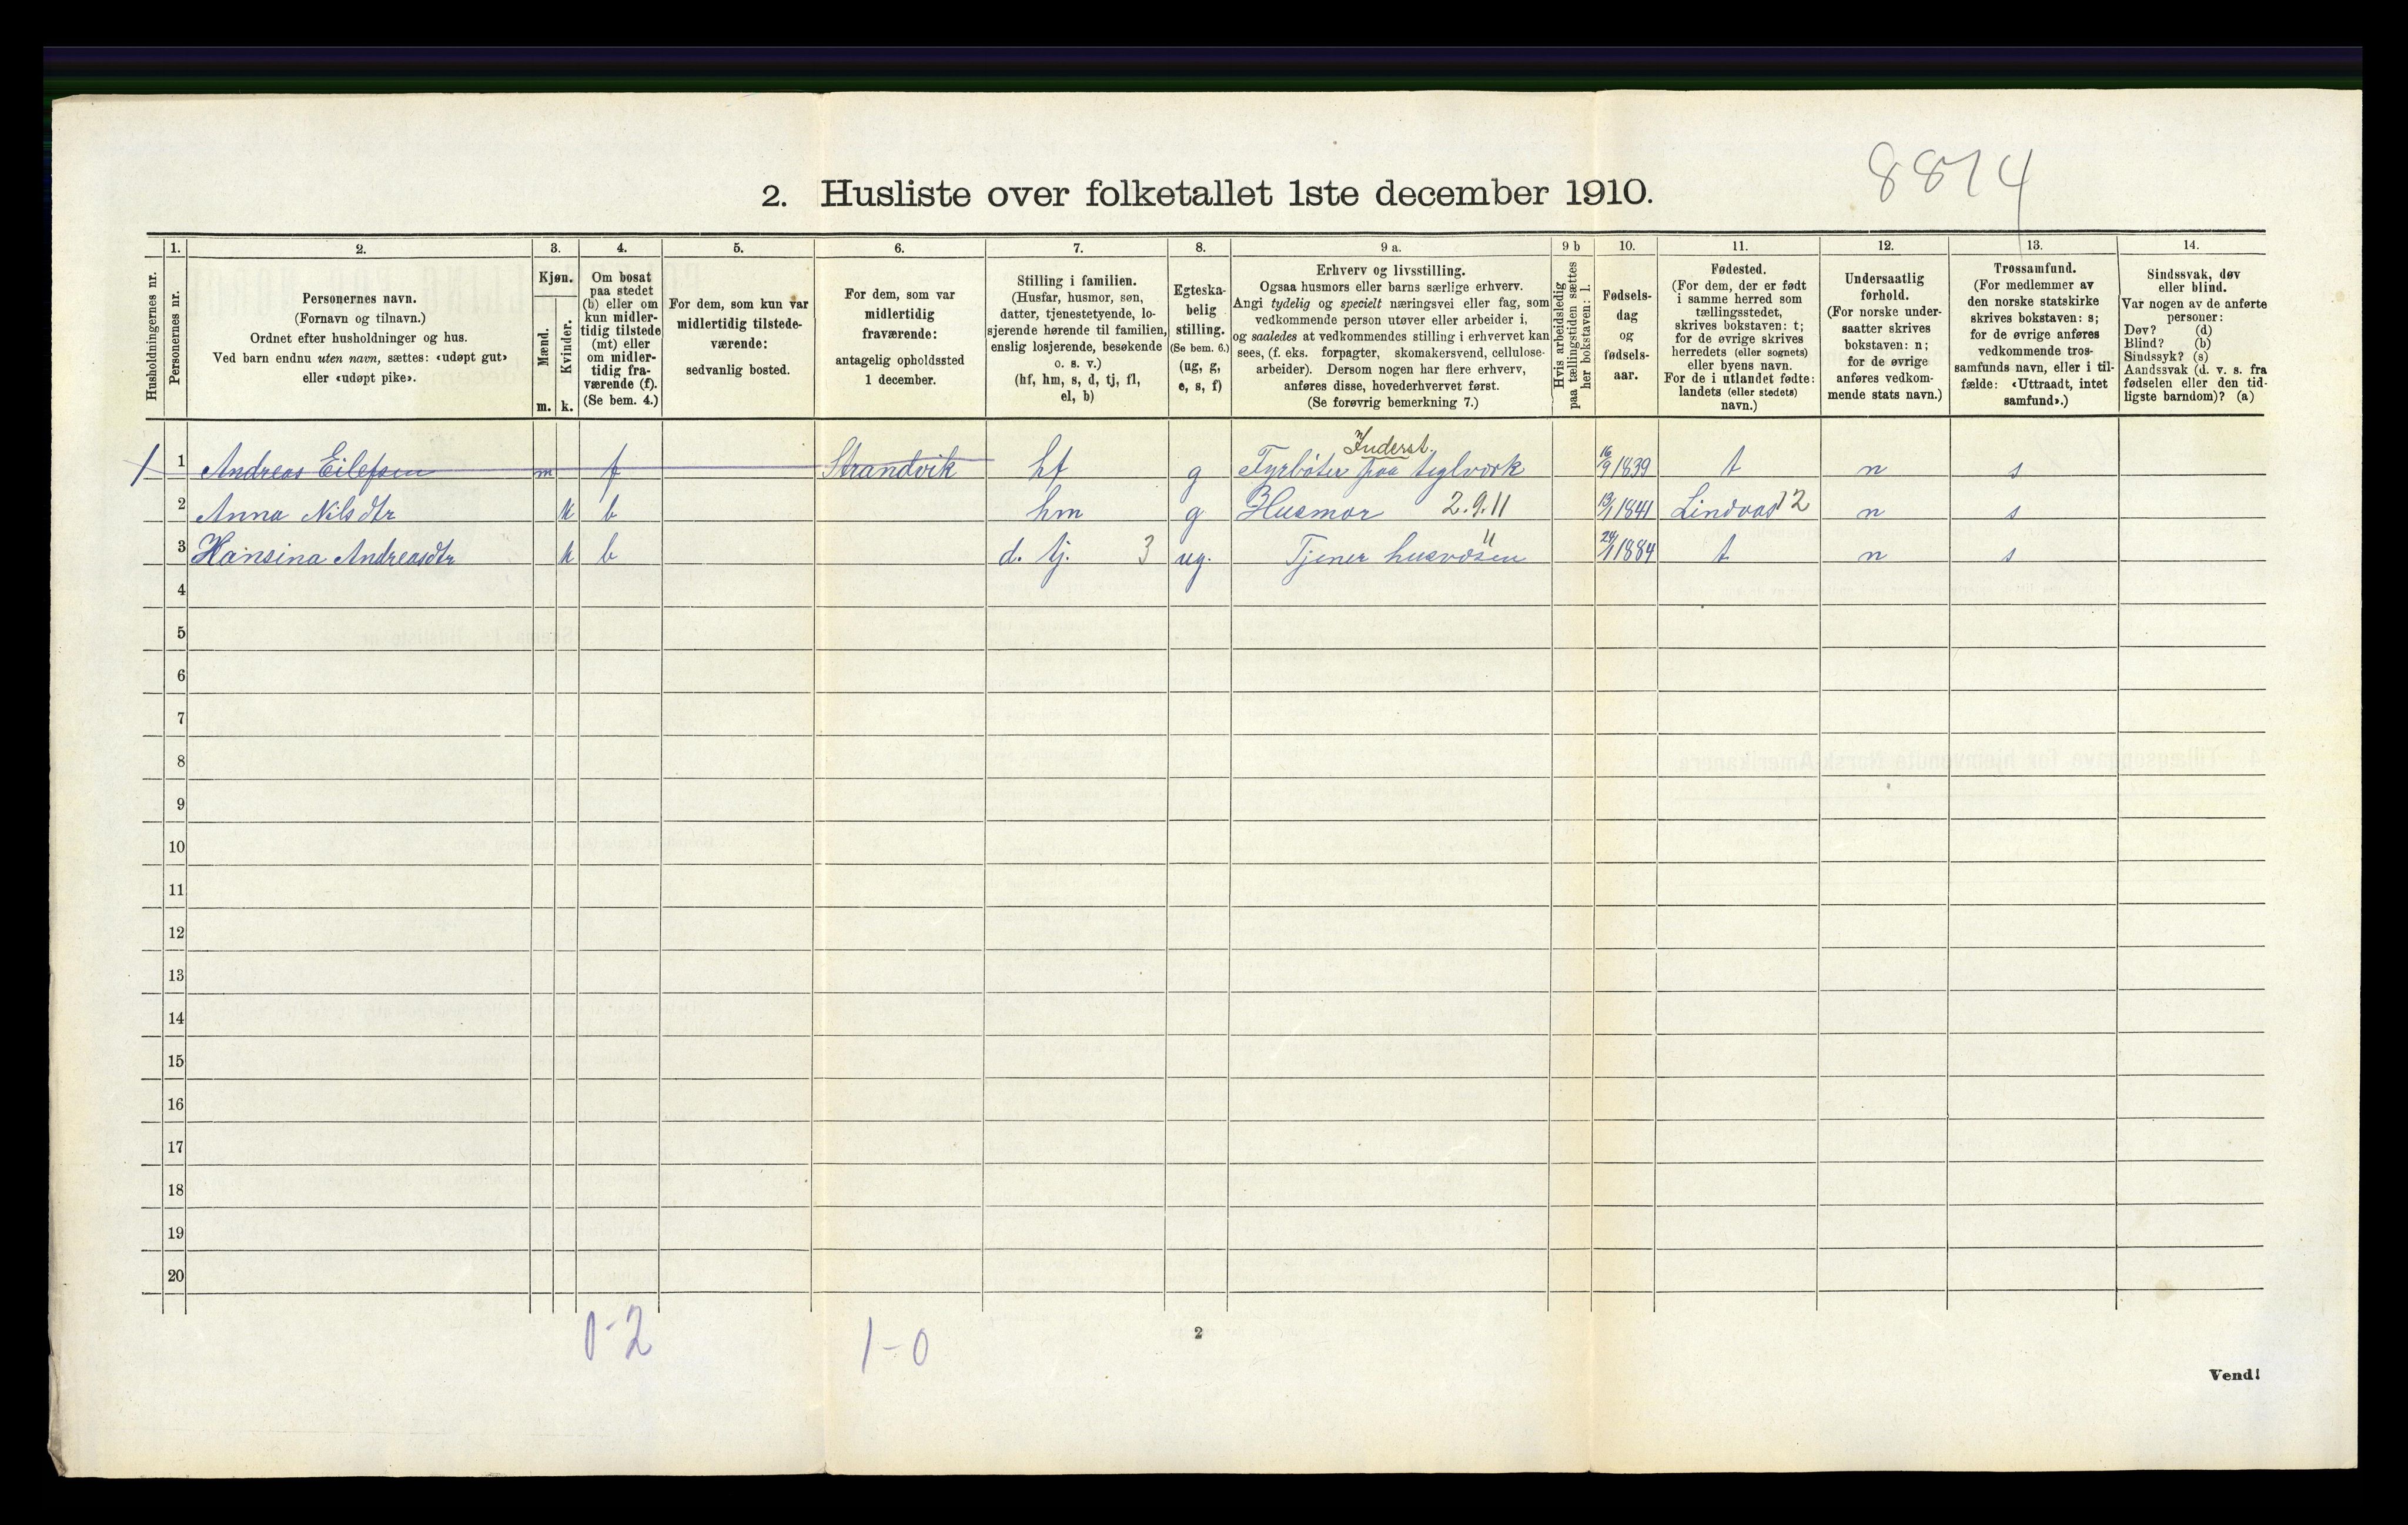 8814
2. Husliste over folketallet 1ste december 1910.
Husholdningernes nr.
1.
Personernes nr.
2.
Personernes navn.
(Fornavn og tilnavn.)
Ordnet efter husholdninger og hus.
Ved barn endnu uten navn, sættes: «udøpt gut»
eller «udøpt pike».
3.
Kjøn.
Mænd.
Kvinder.
m. k.
4.
Om bosat
paa stedet
(b) eller om
kun midler-
tidig tilstede
(mt) eller
om midler-
tidig fra-
værende (f).
(Se bem. 4.)
5.
For dem, som kun var
midlertidig tilstede-
værende:
sedvanlig bosted.
6.
For dem, som var
midlertidig
fraværende:
antagelig opholdssted
1 december.
7.
Stilling i familien.
(Husfar, husmor, søn,
datter, tjenestetyende, lo-
sjerende hørende til familien,
enslig losjerende, besøkende
o. s. v.)
(hf, hm, s, d, tj, fl,
el, b)
8.
Egteska-
belig
stilling.
(Se bem. 6.)
(ug, g,
e, s, f)
9 a.
Erhverv og livsstilling.
Ogsaa husmors eller barns særlige erhverv.
Angi tydelig og specielt næringsvei eller fag, som
vedkommende person utøver eller arbeider i,
og saaledes at vedkommendes stilling i erhvervet kan
sees, (f. eks. forpagter, skomakersvend, cellulose-
arbeider). Dersom nogen har flere erhverv,
anføres disse, hovederhvervet først.
(Se forøvrig bemerkning 7.)
9 b
Hvis arbeidsledig
paa tællingstiden sættes
her bokstaven: l.
10.
Fødsels-
dag
og
fødsels-
aar.
11.
Fødested.
(For dem, der er født
i samme herred som
tællingsstedet,
skrives bokstaven: t;
for de øvrige skrives
herredets (eller sognets)
eller byens navn.
For de i utlandet fødte:
landets (eller stedets)
navn.)
12.
Undersaatlig
forhold.
(For norske under-
saatter skrives
bokstaven: n;
for de øvrige
anføres vedkom-
mende stats navn.)
13.
Trossamfund.
(For medlemmer av
den norske statskirke
skrives bokstaven: s;
for de øvrige anføres
vedkommende tros-
samfunds navn, eller i til-
fælde: «Uttraadt, intet
samfund».)
14.
Sindssvak, døv
eller blind.
Var nogen av de anførte
personer:
Døv? (d)
Blind? (b)
Sindssyk? (s)
Aandssvak (d. v. s. fra
fødselen eller den tid-
ligste barndom)? (a)
Inderst.
1 1 Andreas Eilefsen m f Strandvik hf g Fyrbøter paa teglværk 16/9 1839 t n s
2 Anna Nilsdtr k b hm g Husmor 2.9.11 13/1 1841 Lindaas 12 n s
3 Hansina Andreasdtr k b d. tj. 3 ug. Tjener husvæsen 11 24/1 1884 t n s
4
5
6
7
8
9
10
11
12
13
14
15
16
17
18
19
20
0-2 1-0
2
Vend!